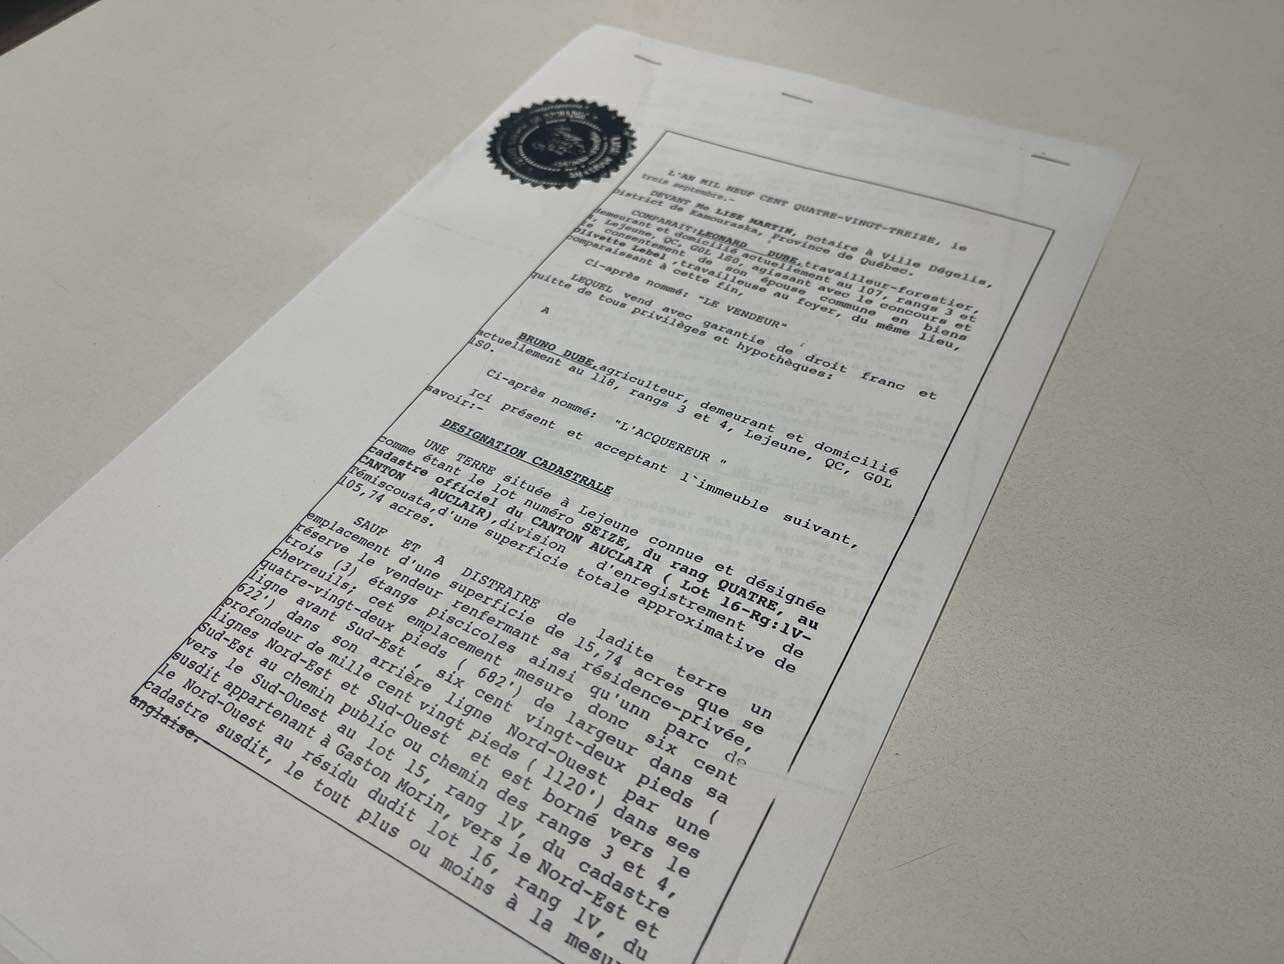 L'AN MIL NEUF CENT QUATRE-VINGT-TREIZE, le
trois septembre.-
DEVANT Me LISE MARTIN, notaire à Ville Dégelis,
District de Kamouraska, Province de Québec.
COMPARAIT:LEONARD DUBE,travailleur-forestier,
demeurant et domicilié actuellement au 107, rangs 3 et
4, Lejeune, QC, G0L 1S0, agissant avec le concours et
le consentement de son épouse commune en biens
Olivette Lebel ,travailleuse au foyer, du même lieu,
comparaissant à cette fin,
Ci-après nommé: "LE VENDEUR"
LEQUEL vend avec garantie de droit franc et
quitte de tous privilèges et hypothèques:
A
BRUNO DUBE,agriculteur, demeurant et domicilié
actuellement au 118, rangs 3 et 4, Lejeune, QC, G0L
1S0.
Ci-après nommé: "L'ACQUEREUR "
Ici présent et acceptant l`immeuble suivant,
savoir:-
DESIGNATION CADASTRALE
UNE TERRE située à Lejeune connue et désignée
comme étant le lot numéro SEIZE, du rang QUATRE, au
cadastre officiel du CANTON AUCLAIR ( Lot 16-Rg:1V-
CANTON AUCLAIR),division d'enregistrement de
Témiscouata,d'une superficie totale approximative de
105,74 acres.
SAUF ET A DISTRAIRE de ladite terre un
emplacement d'une superficie de 15,74 acres que se
réserve le vendeur renfermant sa résidence-privée,
trois (3) étangs piscicoles ainsi qu'unn parc de
chevreuils; cet emplacement mesure donc six cent
quatre-vingt-deux pieds ( 682') de largeur dans sa
ligne avant Sud-Est , six cent vingt-deux pieds (
622') dans son arrière ligne Nord-Ouest par une
profondeur de mille cent vingt pieds ( 1120') dans ses
lignes Nord-Est et Sud-Ouest et est borné vers le
Sud-Est au chemin public ou chemin des rangs 3 et 4,
vers le Sud-Ouest au lot 15, rang 1V, du cadastre
susdit appartenant à Gaston Morin, vers le Nord-Est et
le Nord-Ouest au résidu dudit lot 16, rang 1V, du
cadastre susdit, le tout plus ou moins à la mesu
anglaise.